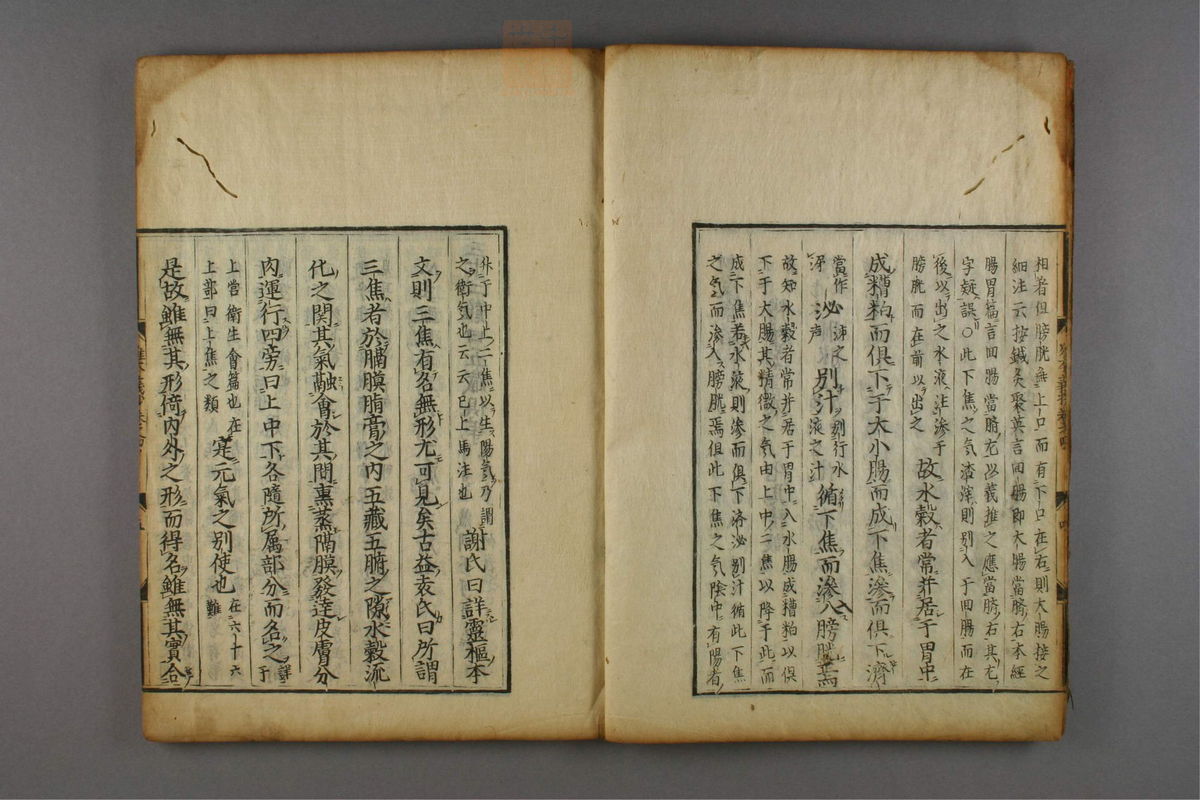 相着但膀胱無上口而有下口在右則大腸接之
細注云按鍼灸聚英言回腸即大腸當臍右本經
腸胃篇言回腸當臍左以義推之應當臍右其左
字疑誤○此下焦之気滲滓則別入于回腸而在
後以出之水液注滲于
膀胱而在前以出之
故水穀者常并居于胃中
成糟粕而俱下于大小腸而成下焦滲而俱下濟
當作
泌
沛之
声
別汁
別行水
液之汁
循下焦而滲入膀胱焉
故知水穀者常并居于胃中入水腸成糟粕以俱
下于大腸其精微之気由上中二焦以降于此而
成下焦者水液則滲而俱下濟泌別汁循此下焦
之気而滲入膀胱焉但此下焦之気陰中有陽者
升于中上二焦以生陽気乃謂
之衛気也云云已上馬注也
謝氏曰詳靈樞本
文則三焦有名無形尤可見矣古益袁氏曰所謂
三焦者於膈膜脂膏之内五藏五腑之隙水穀流
化之関其氣融會於其間熏蒸隔膜發達皮膚分
肉運行四旁曰上中下各隨所属部分而名之
詳
于
上當衛生會篇也在
上部曰上焦之類
寔元氣之別使也
在六十六
難
是故雖無其形倚内外之形而得名雖無其實合